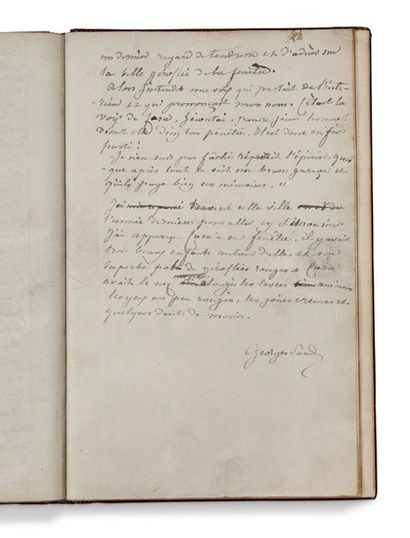 un dernier regard de tendresse et d'adieu sur
la belle giroflée de la fenêtre.
Alors j'entendis une voix qui partait de l'inté-
-rieur et qui prononçait mon nom. C'était la
voix de Cora,
disait-elle d'un ton pénétré. Il est donc enfin
parti!
- Je n'en suis pas fâché répondit l'épicier, quoi-
-que après tout ce soit un brave garçon et
qu'il paye bien ses mémoires."
J'ai traversé cette ville
l'année dernière pour aller en
J'ai apperçu Cora à sa fenêtre. il y avait
trois beaux enfants autour d'elle et un
superbe pot de giroflées rouges. Cora
avait le nez allongé, les lèvres amincies
les yeux un peu rouges, les joues creuses et
quelques dents de moins.
George Sand